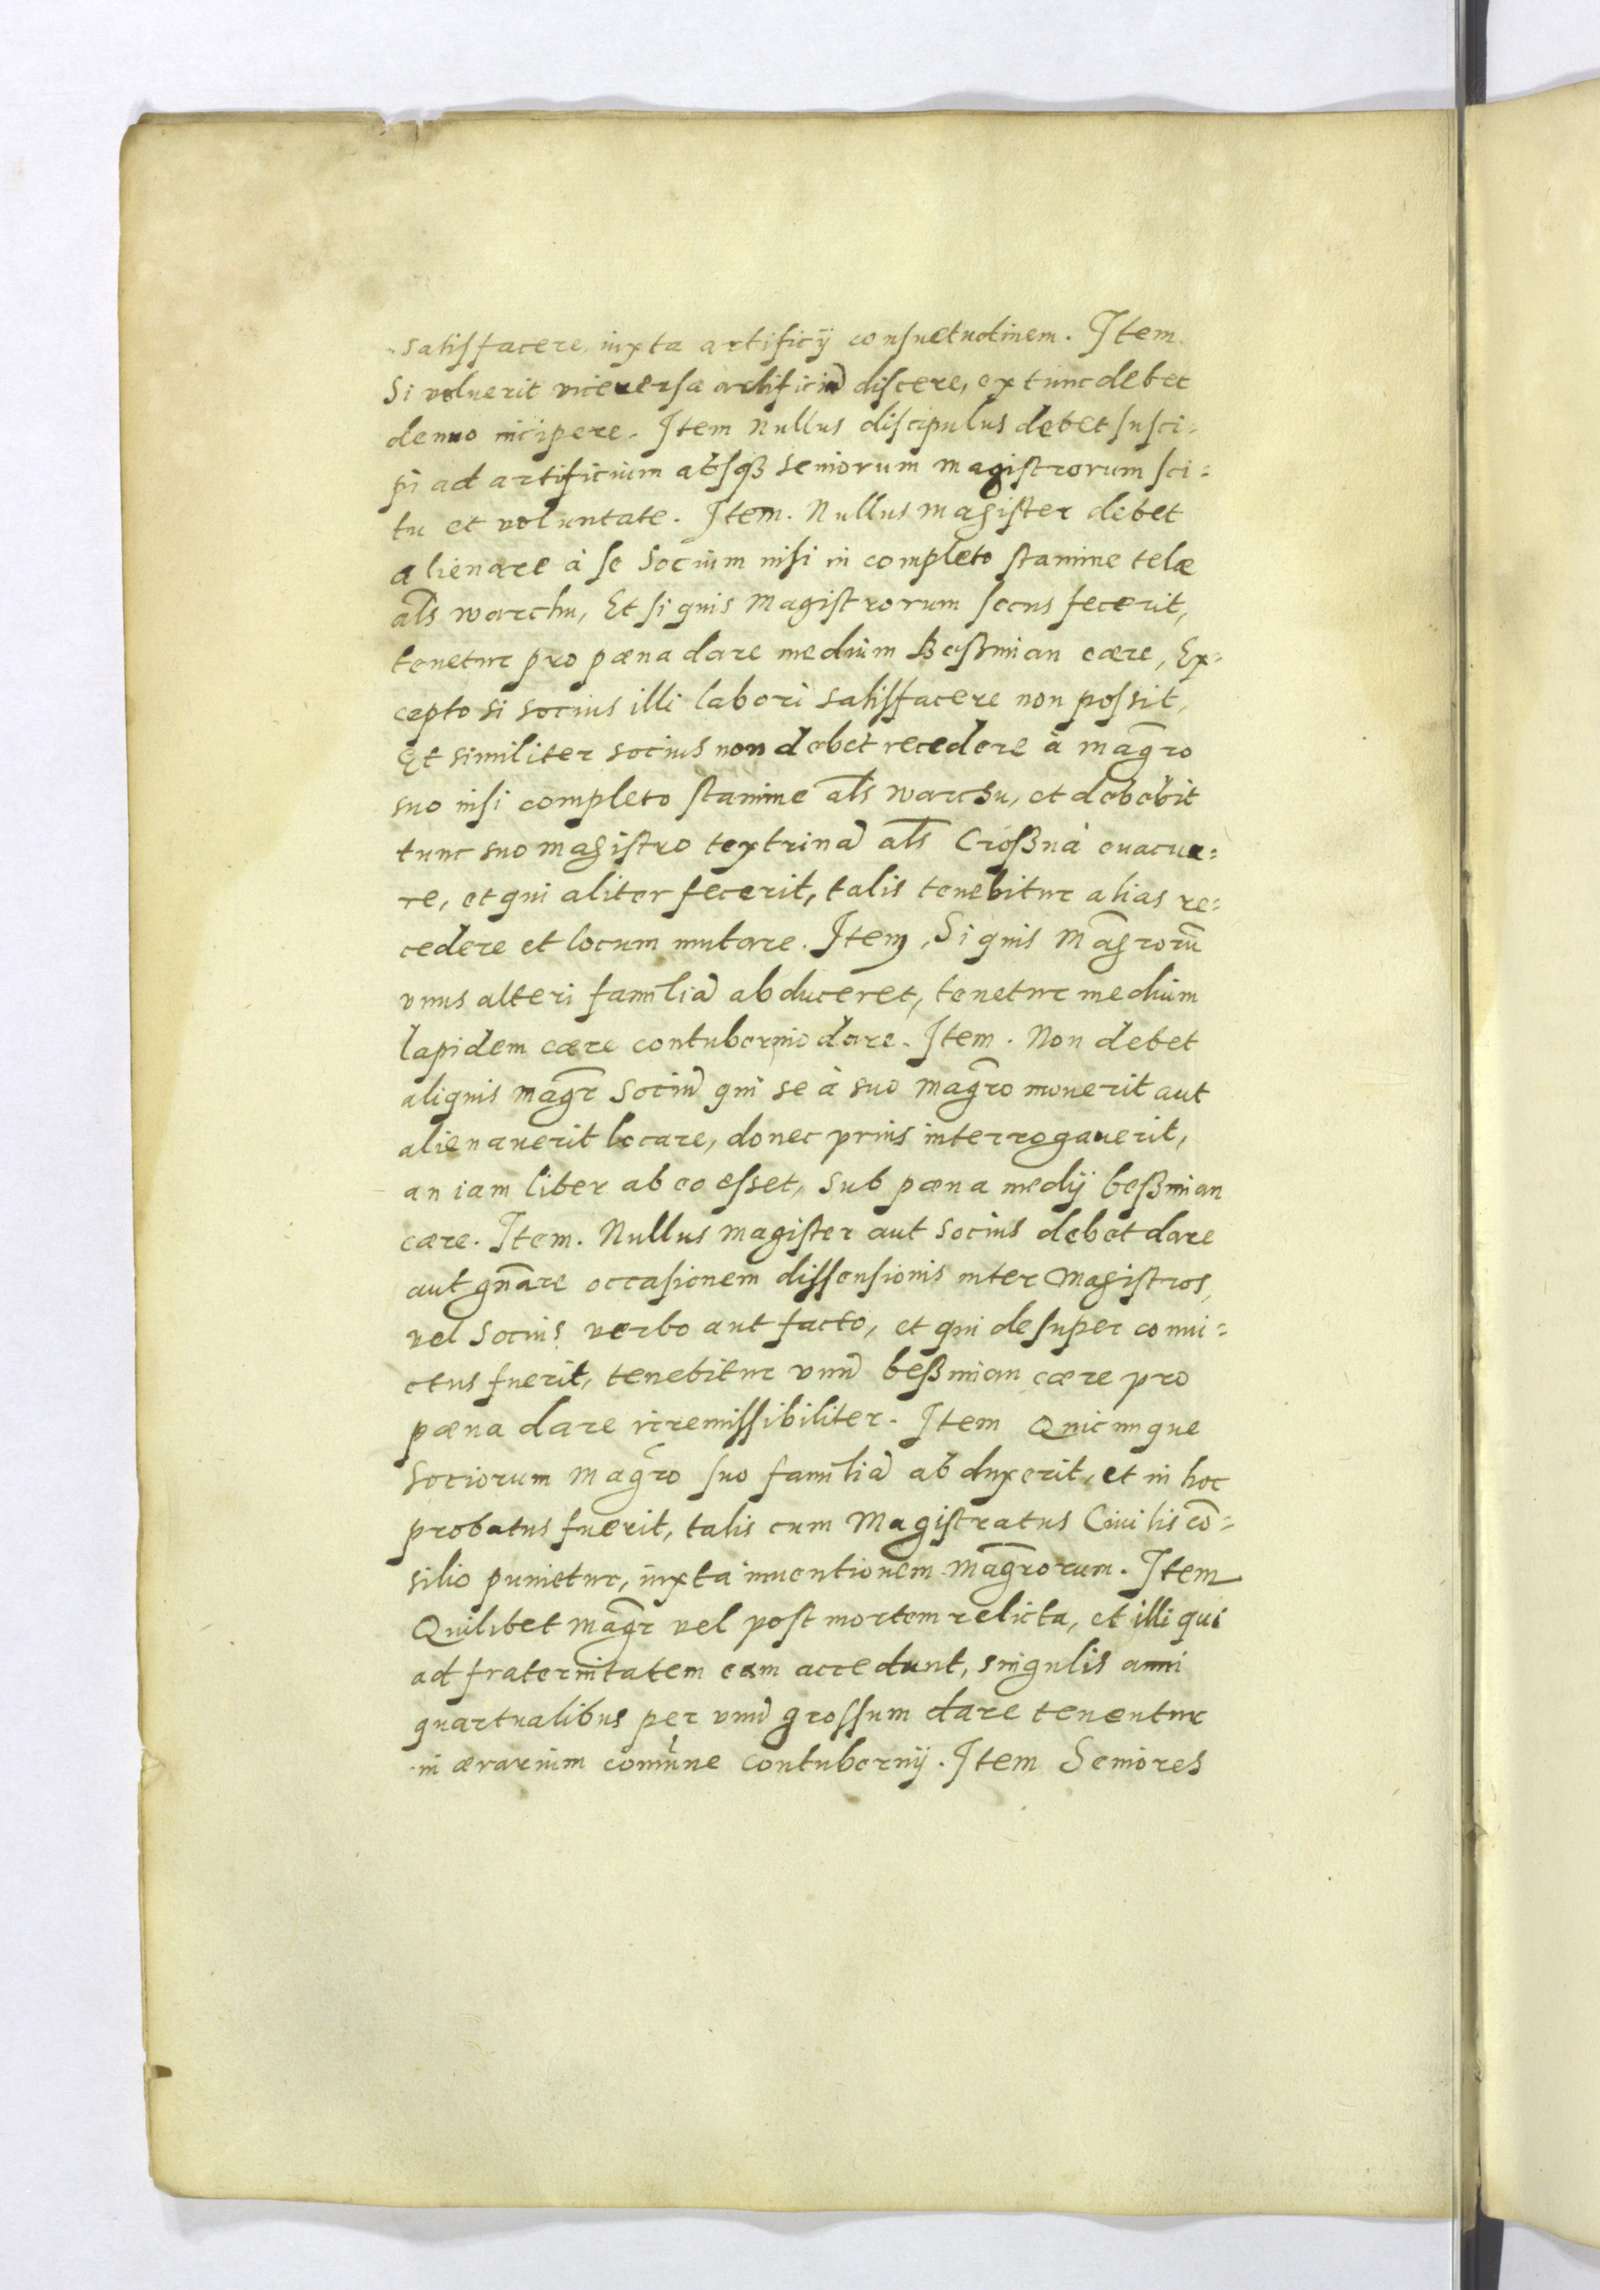 satisfacere, iuxta artificÿ consuetudinem. Item
Si voluerit viceuersa artificiũ discere, extunc debet
denuo incipere. Item Nullus discipulus debet susci=
pi ad artificium absqȝ seniorum magistrorum sci=
tu et voluntate. Item. Nullus magister debet
alienare à se socium nisi in completo stamine telæ
al̃s warchu, Et si quis Magistrorum secus fecerit,
tenetur pro pæna dare medium Beßmian cære, Ex=
cepto si socius illi labori satisfacere non possit,
Et similiter socius non debet recedere à mag̃ro
suo nisi completo stamine al̃s warchu, et debebit
tunc suo magistro textrinã al̃s Croßna euacua=
re, et qui aliter fecerit, talis tenebitur alias re=
cedere et locum mutare. Item, Si quis Mag̃rorũ
vnus alteri familiã abduceret, tenetur medium
lapidem cære contubernio dare. Item. Non debet
aliquis mag̃r sociũ qui se à suo mag̃ro mouerit aut
alienauerit locare, donec prius interrogauerit,
an iam liber ab eo esset, sub pæna medÿ beßmian
cære. Item. Nullus magister aut socius debet dare
aut gñare occasionem dissensionis inter Magistros,
vel socius verbo aut facto, et qui desuper conui=
ctus fuerit, tenebitur vnũ beßmian cære pro
pæna dare irremissibiliter. Item Quicunque
sociorum mag̃ro suo familiã abduxerit, et in hoc
probatus fuerit, talis cum Magistratus Ciuilis cõ=
silio punietur, iuxta inuentionem mag̃rorum. Item
Quilibet mag̃r vel post mortem relicta, et illi qui
ad fraternitatem eam accedunt, singulis anni
quartualibus per vnũ grossum dare tenentur
in ærarium com̃une contubernÿ. Item Seniores